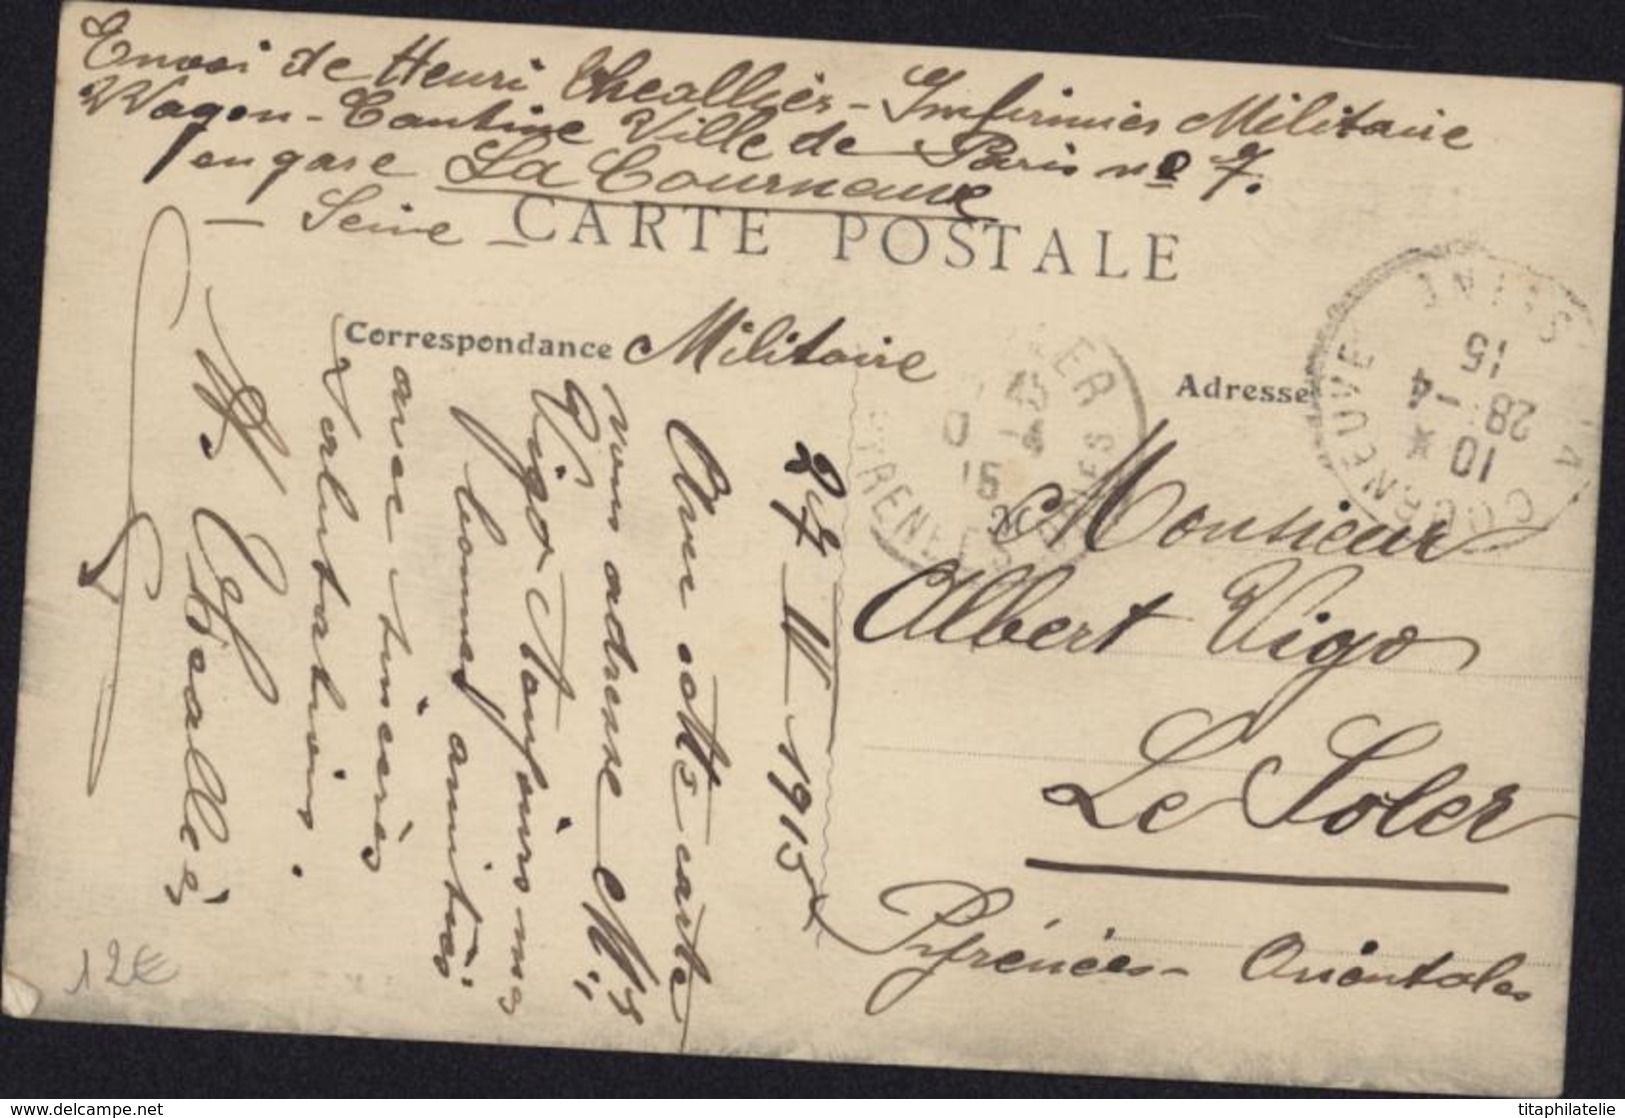 Envoi de Henri Théallier - Infirmier Militaire
Wagon-Cantine Ville de Paris nº 7.
en gare La Courneuve
- Seine -
CARTE POSTALE
Correspondance Militaire
Adresse
27 IV 1915
Avec cette carte
vous adresse Mr
Vigo toujours mes
bonnes amitiés
avec sincères
salutations.
H Théallier
Monsieur
Albert Vigo
Le Soler
Pyrénées-Orientales
LA COURNEUVE
SEINE
10 *
28 - 4
15
SOLER
PYRENEES
15
12€
delcampe.net
titaphilatelie